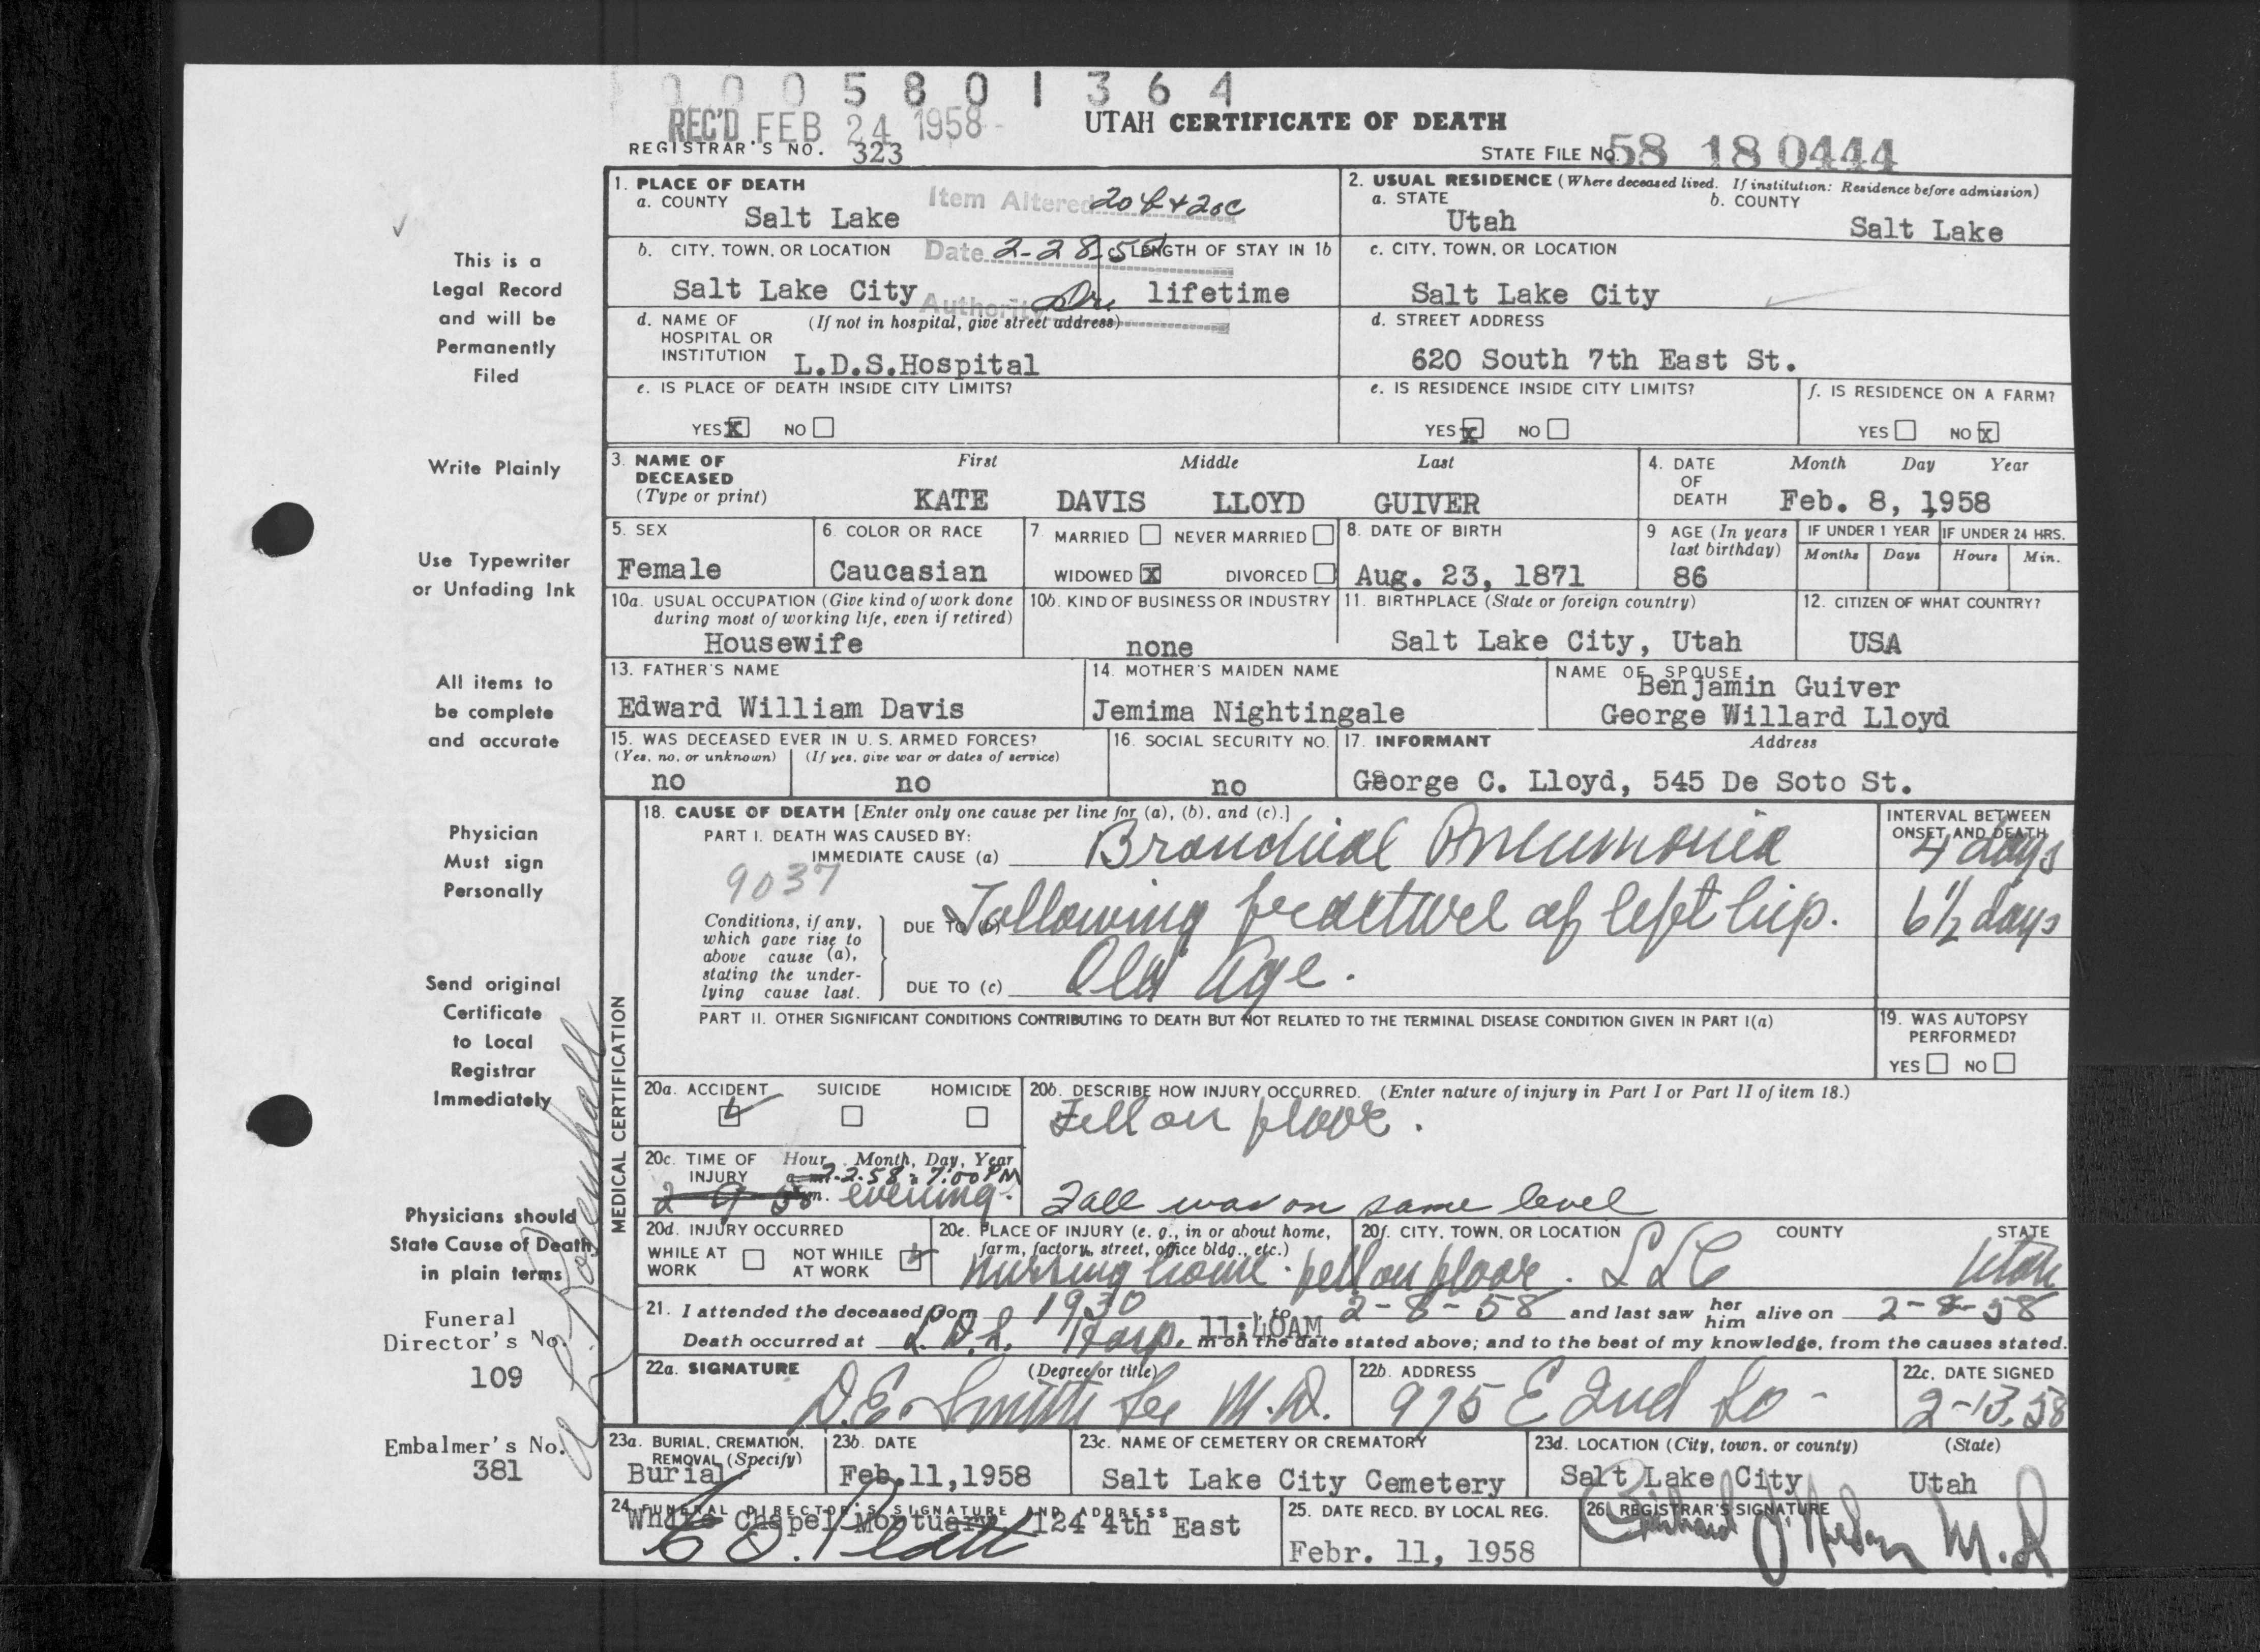 0 0 0 5 8 0 1 3 6 4
REC'D FEB 24 1958
UTAH CERTIFICATE OF DEATH
REGISTRAR'S NO. 323
STATE FILE NO. 58 18 0444
1. PLACE OF DEATH
a. COUNTY
Salt Lake
Item Altered 20b + 20c
2. USUAL RESIDENCE (Where deceased lived. If institution: Residence before admission)
a. STATE
Utah
b. COUNTY
Salt Lake
b. CITY, TOWN, OR LOCATION
Salt Lake City
Date 2-28-58
Authority Dr.
c. LENGTH OF STAY IN 1b
lifetime
c. CITY, TOWN, OR LOCATION
Salt Lake City
d. NAME OF HOSPITAL OR INSTITUTION (If not in hospital, give street address)
L.D.S.Hospital
d. STREET ADDRESS
620 South 7th East St.
e. IS PLACE OF DEATH INSIDE CITY LIMITS?
YES X NO
e. IS RESIDENCE INSIDE CITY LIMITS?
YES X NO
f. IS RESIDENCE ON A FARM?
YES NO X
3. NAME OF DECEASED (Type or print)
First Middle Last
KATE DAVIS LLOYD GUIVER
4. DATE OF DEATH
Month Day Year
Feb. 8, 1958
5. SEX
Female
6. COLOR OR RACE
Caucasian
7. MARRIED NEVER MARRIED
WIDOWED X DIVORCED
8. DATE OF BIRTH
Aug. 23, 1871
9 AGE (In years last birthday)
86
IF UNDER 1 YEAR
Months Days
IF UNDER 24 HRS.
Hours Min.
10a. USUAL OCCUPATION (Give kind of work done during most of working life, even if retired)
Housewife
10b. KIND OF BUSINESS OR INDUSTRY
none
11. BIRTHPLACE (State or foreign country)
Salt Lake City, Utah
12. CITIZEN OF WHAT COUNTRY?
USA
13. FATHER'S NAME
Edward William Davis
14. MOTHER'S MAIDEN NAME
Jemima Nightingale
NAME OF SPOUSE
Benjamin Guiver
George Willard Lloyd
15. WAS DECEASED EVER IN U. S. ARMED FORCES?
(Yes, no, or unknown) (If yes, give war or dates of service)
no no
16. SOCIAL SECURITY NO.
no
17. INFORMANT Address
George C. Lloyd, 545 De Soto St.
MEDICAL CERTIFICATION
18. CAUSE OF DEATH [Enter only one cause per line for (a), (b), and (c).]
INTERVAL BETWEEN ONSET AND DEATH
PART I. DEATH WAS CAUSED BY:
IMMEDIATE CAUSE (a) Bronchial Pneumonia 4 days
9037
Conditions, if any, which gave rise to above cause (a), stating the underlying cause last.
DUE TO (b) Following fracture of left hip. 6½ days
DUE TO (c) Old Age.
PART II. OTHER SIGNIFICANT CONDITIONS CONTRIBUTING TO DEATH BUT NOT RELATED TO THE TERMINAL DISEASE CONDITION GIVEN IN PART I(a)
19. WAS AUTOPSY PERFORMED?
YES NO
20a. ACCIDENT SUICIDE HOMICIDE
20b. DESCRIBE HOW INJURY OCCURRED. (Enter nature of injury in Part I or Part II of item 18.)
Fell on floor.
Fall was on same level
20c. TIME OF INJURY
Hour Month, Day, Year
2-2-58 7:00 PM
evening.
20d. INJURY OCCURRED
WHILE AT WORK NOT WHILE AT WORK
20e. PLACE OF INJURY (e. g., in or about home, farm, factory, street, office bldg., etc.)
Nursing home. fell on floor.
20f. CITY, TOWN, OR LOCATION COUNTY STATE
SLC Utah
21. I attended the deceased from 1930 to 2-8-58 and last saw her him alive on 2-8-58
Death occurred at L.D.S. Hosp. 11:40AM m on the date stated above; and to the best of my knowledge, from the causes stated.
22a. SIGNATURE (Degree or title)
D.E. Smith M.D.
22b. ADDRESS
975 E 2nd So -
22c. DATE SIGNED
2-13.58
23a. BURIAL, CREMATION, REMOVAL (Specify)
Burial
23b. DATE
Feb.11,1958
23c. NAME OF CEMETERY OR CREMATORY
Salt Lake City Cemetery
23d. LOCATION (City, town, or county) (State)
Salt Lake City Utah
24. FUNERAL DIRECTOR'S SIGNATURE AND ADDRESS
White Chapel Mortuary 124 4th East
25. DATE RECD. BY LOCAL REG.
Febr. 11, 1958
26. REGISTRAR'S SIGNATURE
M.D
This is a
Legal Record
and will be
Permanently
Filed
Write Plainly
Use Typewriter
or Unfading Ink
All items to
be complete
and accurate
Physician
Must sign
Personally
Send original
Certificate
to Local
Registrar
Immediately
Physicians should
State Cause of Death
in plain terms
Funeral
Director's No.
109
Embalmer's No.
381